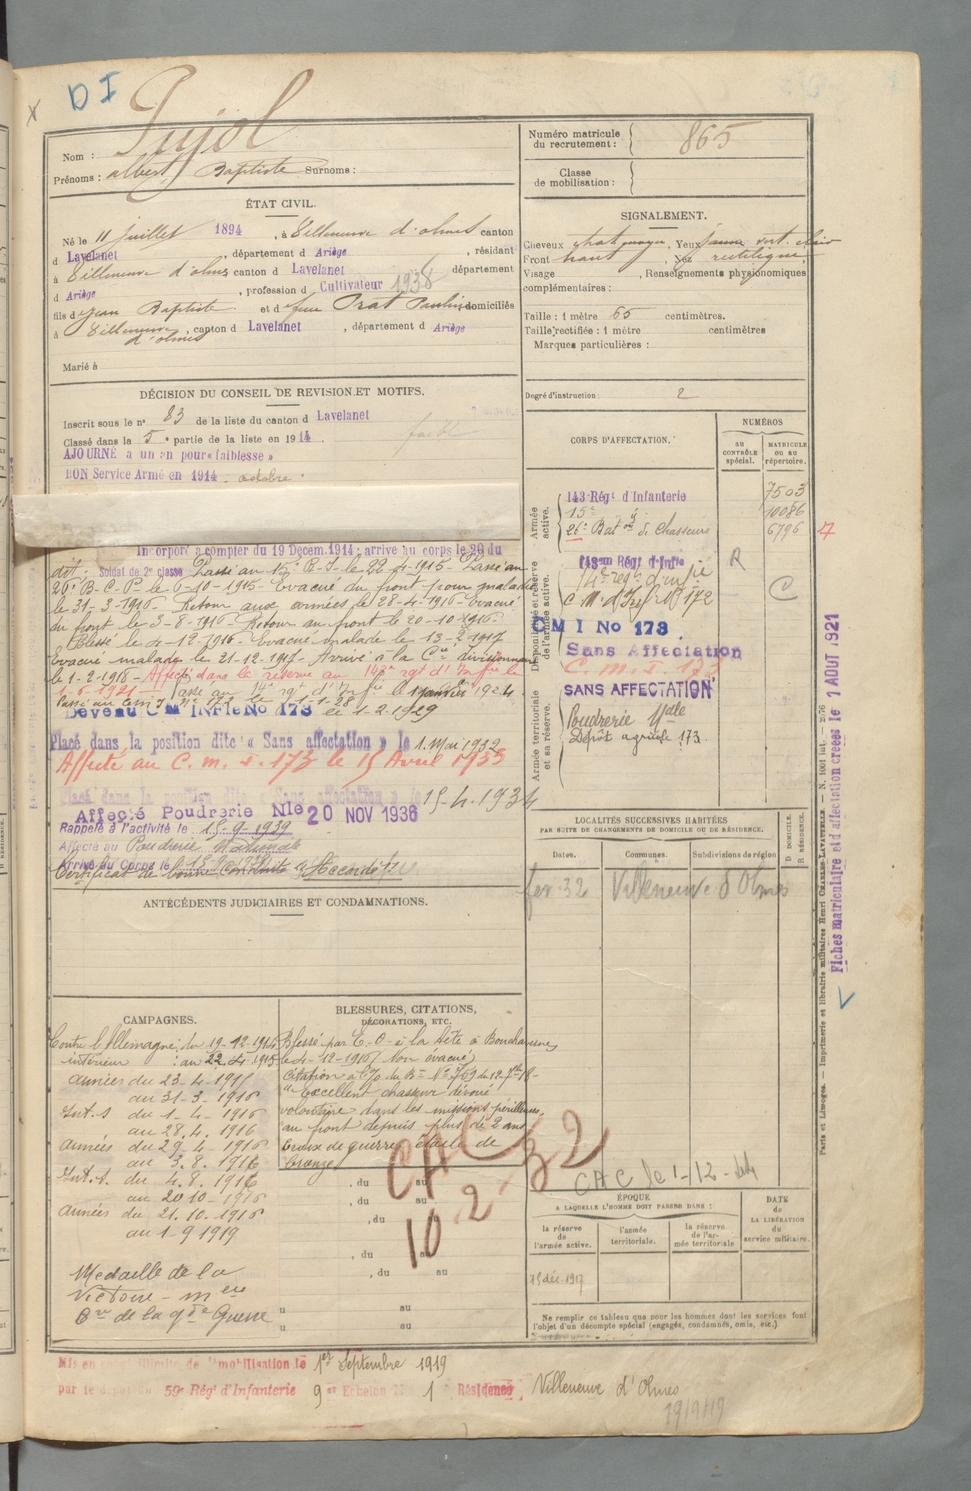 D I
Nom : Pujol
Prénoms : albert, Baptiste Surnoms :
Numéro matricule du recrutement : 865
Classe de mobilisation :
ÉTAT CIVIL.
Né le 11 juillet 1894, à Villeneuve d'olmes canton
d Lavelanet, département d Ariège, résidant
à Villeneuve d'olmes canton d Lavelanet département
d Ariège, profession d Cultivateur 1938
fils d jean Baptiste et d feue Prat Pauline domiciliés
à Villeneuve d'olmes, canton d Lavelanet, département d Ariège
Marié à
SIGNALEMENT.
Cheveux chat, Yeux jaune vert. clair
Front haut, Nez rectiligne,
Visage , Renseignements physionomiques
complémentaires :
Taille : 1 mètre 65 centimètres.
Taille rectifiée : 1 mètre centimètres
Marques particulières :
Degré d'instruction : 2
DÉCISION DU CONSEIL DE REVISION ET MOTIFS.
Inscrit sous le n° 83 de la liste du canton d Lavelanet
Classé dans la 5e partie de la liste en 1914.
AJOURNÉ a un an pour « faiblesse »
BON Service Armé en 1914 . octobre .
Incorporé à compter du 19 Décem. 1914 ; arrivé au corps le 20 du
dit. Soldat de 2e classe Passé au 15e R. I. le 22-4-1915. Passé au
26e B.C.P. le 6-10-1915. Evacué du front pour maladie
le 31-3-1916. Retour aux armées le 28-4-1916. Evacué
du front le 3-8-1916. Retour au front le 20-10-1916.
Blessé le 4-12-1916. Evacué malade le 13-2-1917
Evacué malade le 21-12-1917. Arrivé à la Cie divisionnaire
le 1-2-1918. Affecté dans la réserve au 14e rgt d'Infie le
1-6-1921. Passé au 14e rgt d'Infie le 1 janvier 1924.
Passé au C m I No 172 le 1-1-28
Devenu C M INFie No 173 le 1-2-1929
Placé dans la position dite « Sans affectation » le 1 Mai 1932
Affecté au C. m. I. 173 le 15 Avril 1933
Placé dans la position dite Sans affectation le 15-4-1934
Affecté Poudrerie Nle 20 NOV 1936
Rappelé à l'activité le 15-9-1939
Affecté au Poudrerie Nationale
Arrivé au Corps le
Certificat de bonne conduite Accordé
CORPS D'AFFECTATION.
NUMÉROS
AU CONTRÔLE spécial.
MATRICULE ou au répertoire.
Armée active.
143 Régt d'Infanterie 7503
15e 10086
26e Baton de Chasseurs 6796
Disponibilité et réserve de l'armée active.
14e regt d'infie R
C M d'Infie No 172 C
C M I No 173
Sans Affectation
C. m. I. 173
SANS AFFECTATION
Armée territoriale et sa réserve.
Poudrerie Nale
Dépôt agricole 173
LOCALITÉS SUCCESSIVES HABITÉES
PAR SUITE DE CHANGEMENTS DE DOMICILE OU DE RÉSIDENCE.
Dates. Communes. Subdivisions de région D DOMICILE. R RÉSIDENCE.
fev. 32 Villeneuve d'Olmes
ANTÉCÉDENTS JUDICIAIRES ET CONDAMNATIONS.
CAMPAGNES.
Contre l'Allemagne du 19-12-1914
intérieur : au 22-4-1915
armées du 23-4-1915
au 31-3-1916
Int. du 1-4-1916
au 28.4.1916
armées du 29-4-1916
au 3.8.1916
Int. du 4.8.1916
au 20 10-1916
armées du 21.10.1916
au 1-9 1919
Médaille de la
Victoire - m
de la gde Guerre
BLESSURES, CITATIONS,
DÉCORATIONS, ETC.
Blessé par E.O. à la tête à Bouchavesnes
le 4-12-1916 (Non évacué)
Citation à l'O. du Bon
"Excellent chasseur dévoué
volontaire dans les missions périlleuses,
au front depuis plus de 2 ans.
Croix de guerre étoile de
bronze
, du au
, du au
, du au
, du au
, du au
u au
u au
CAC 32
10 2
CAC le 1-12-
ÉPOQUE
A LAQUELLE L'HOMME DOIT PASSER DANS :
DATE DE LA LIBÉRATION du service militaire.
la réserve de l'armée active.
l'armée territoriale.
la réserve de l'armée territoriale
Ne remplir ce tableau que pour les hommes dont les services font
l'objet d'un décompte spécial (engagés, condamnés, omis, etc.)
Mis en congé illimité de démobilisation le 1er Septembre 1919
par le dépôt du 59e Régt d'Infanterie 9e Echelon No 1 Résidence Villeneuve d'Olmes
19/9/19
Fiches matriculaire et d'affectation créées le 1 AOUT 1921
Paris et Limoges. — Imprimerie et librairie militaires Henri CHARLES-LAVAUZELLE